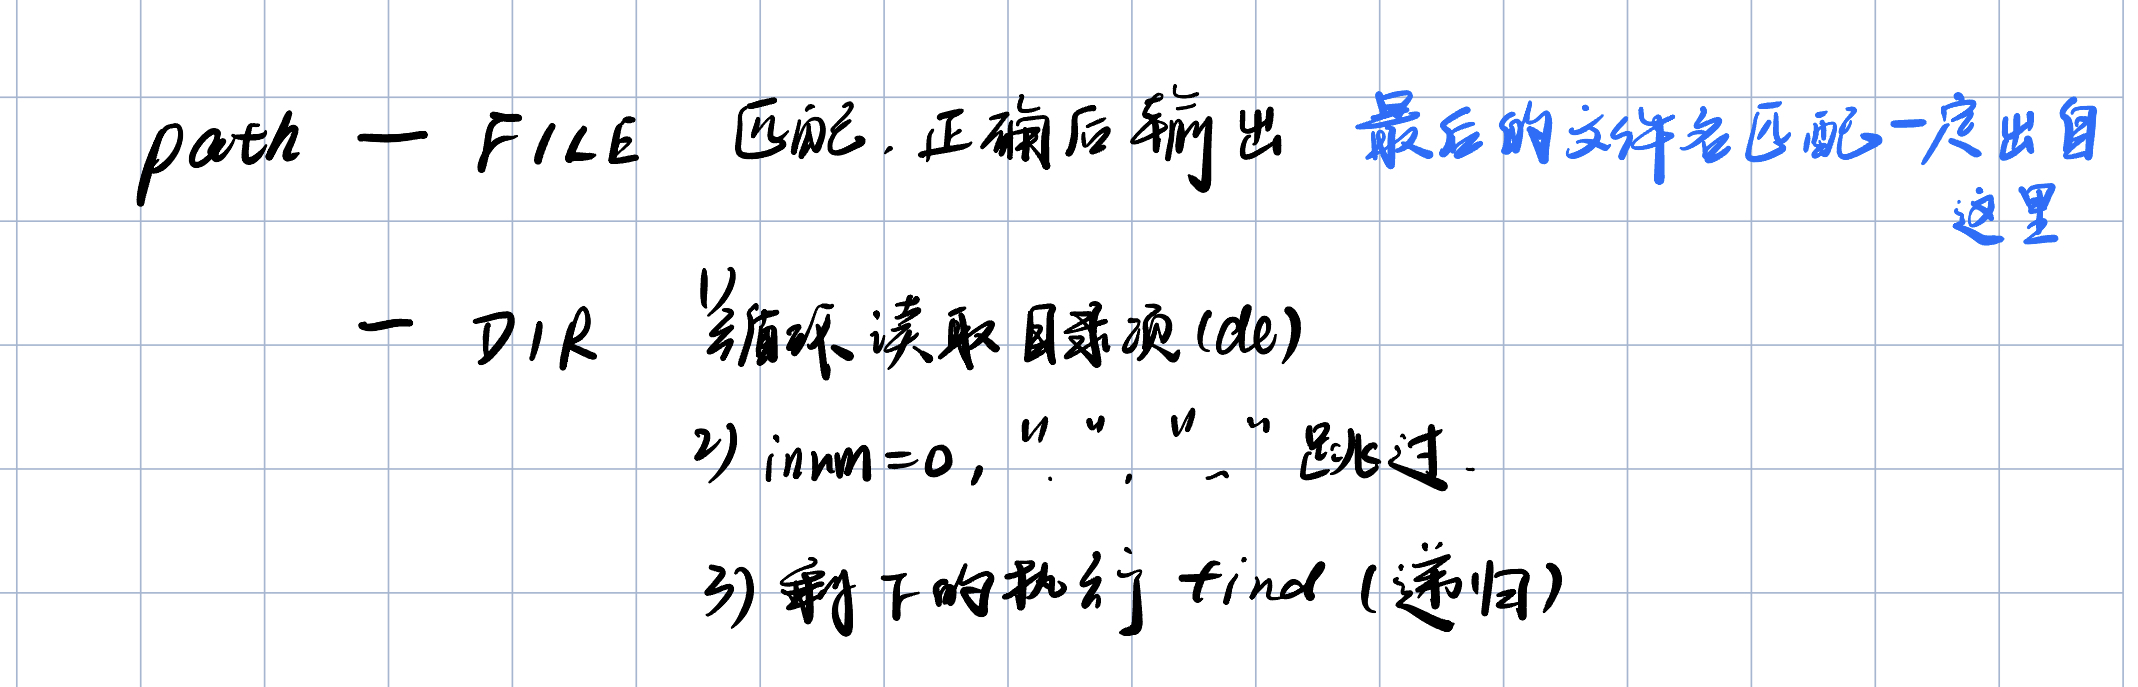 path — FILE 匹配,正确后输出 最后的文件名匹配一定出自
这里
— DIR 1) 循环读取目录项(de)
2) inum=0, "." , ".." 跳过.
3) 剩下的执行 find (递归)